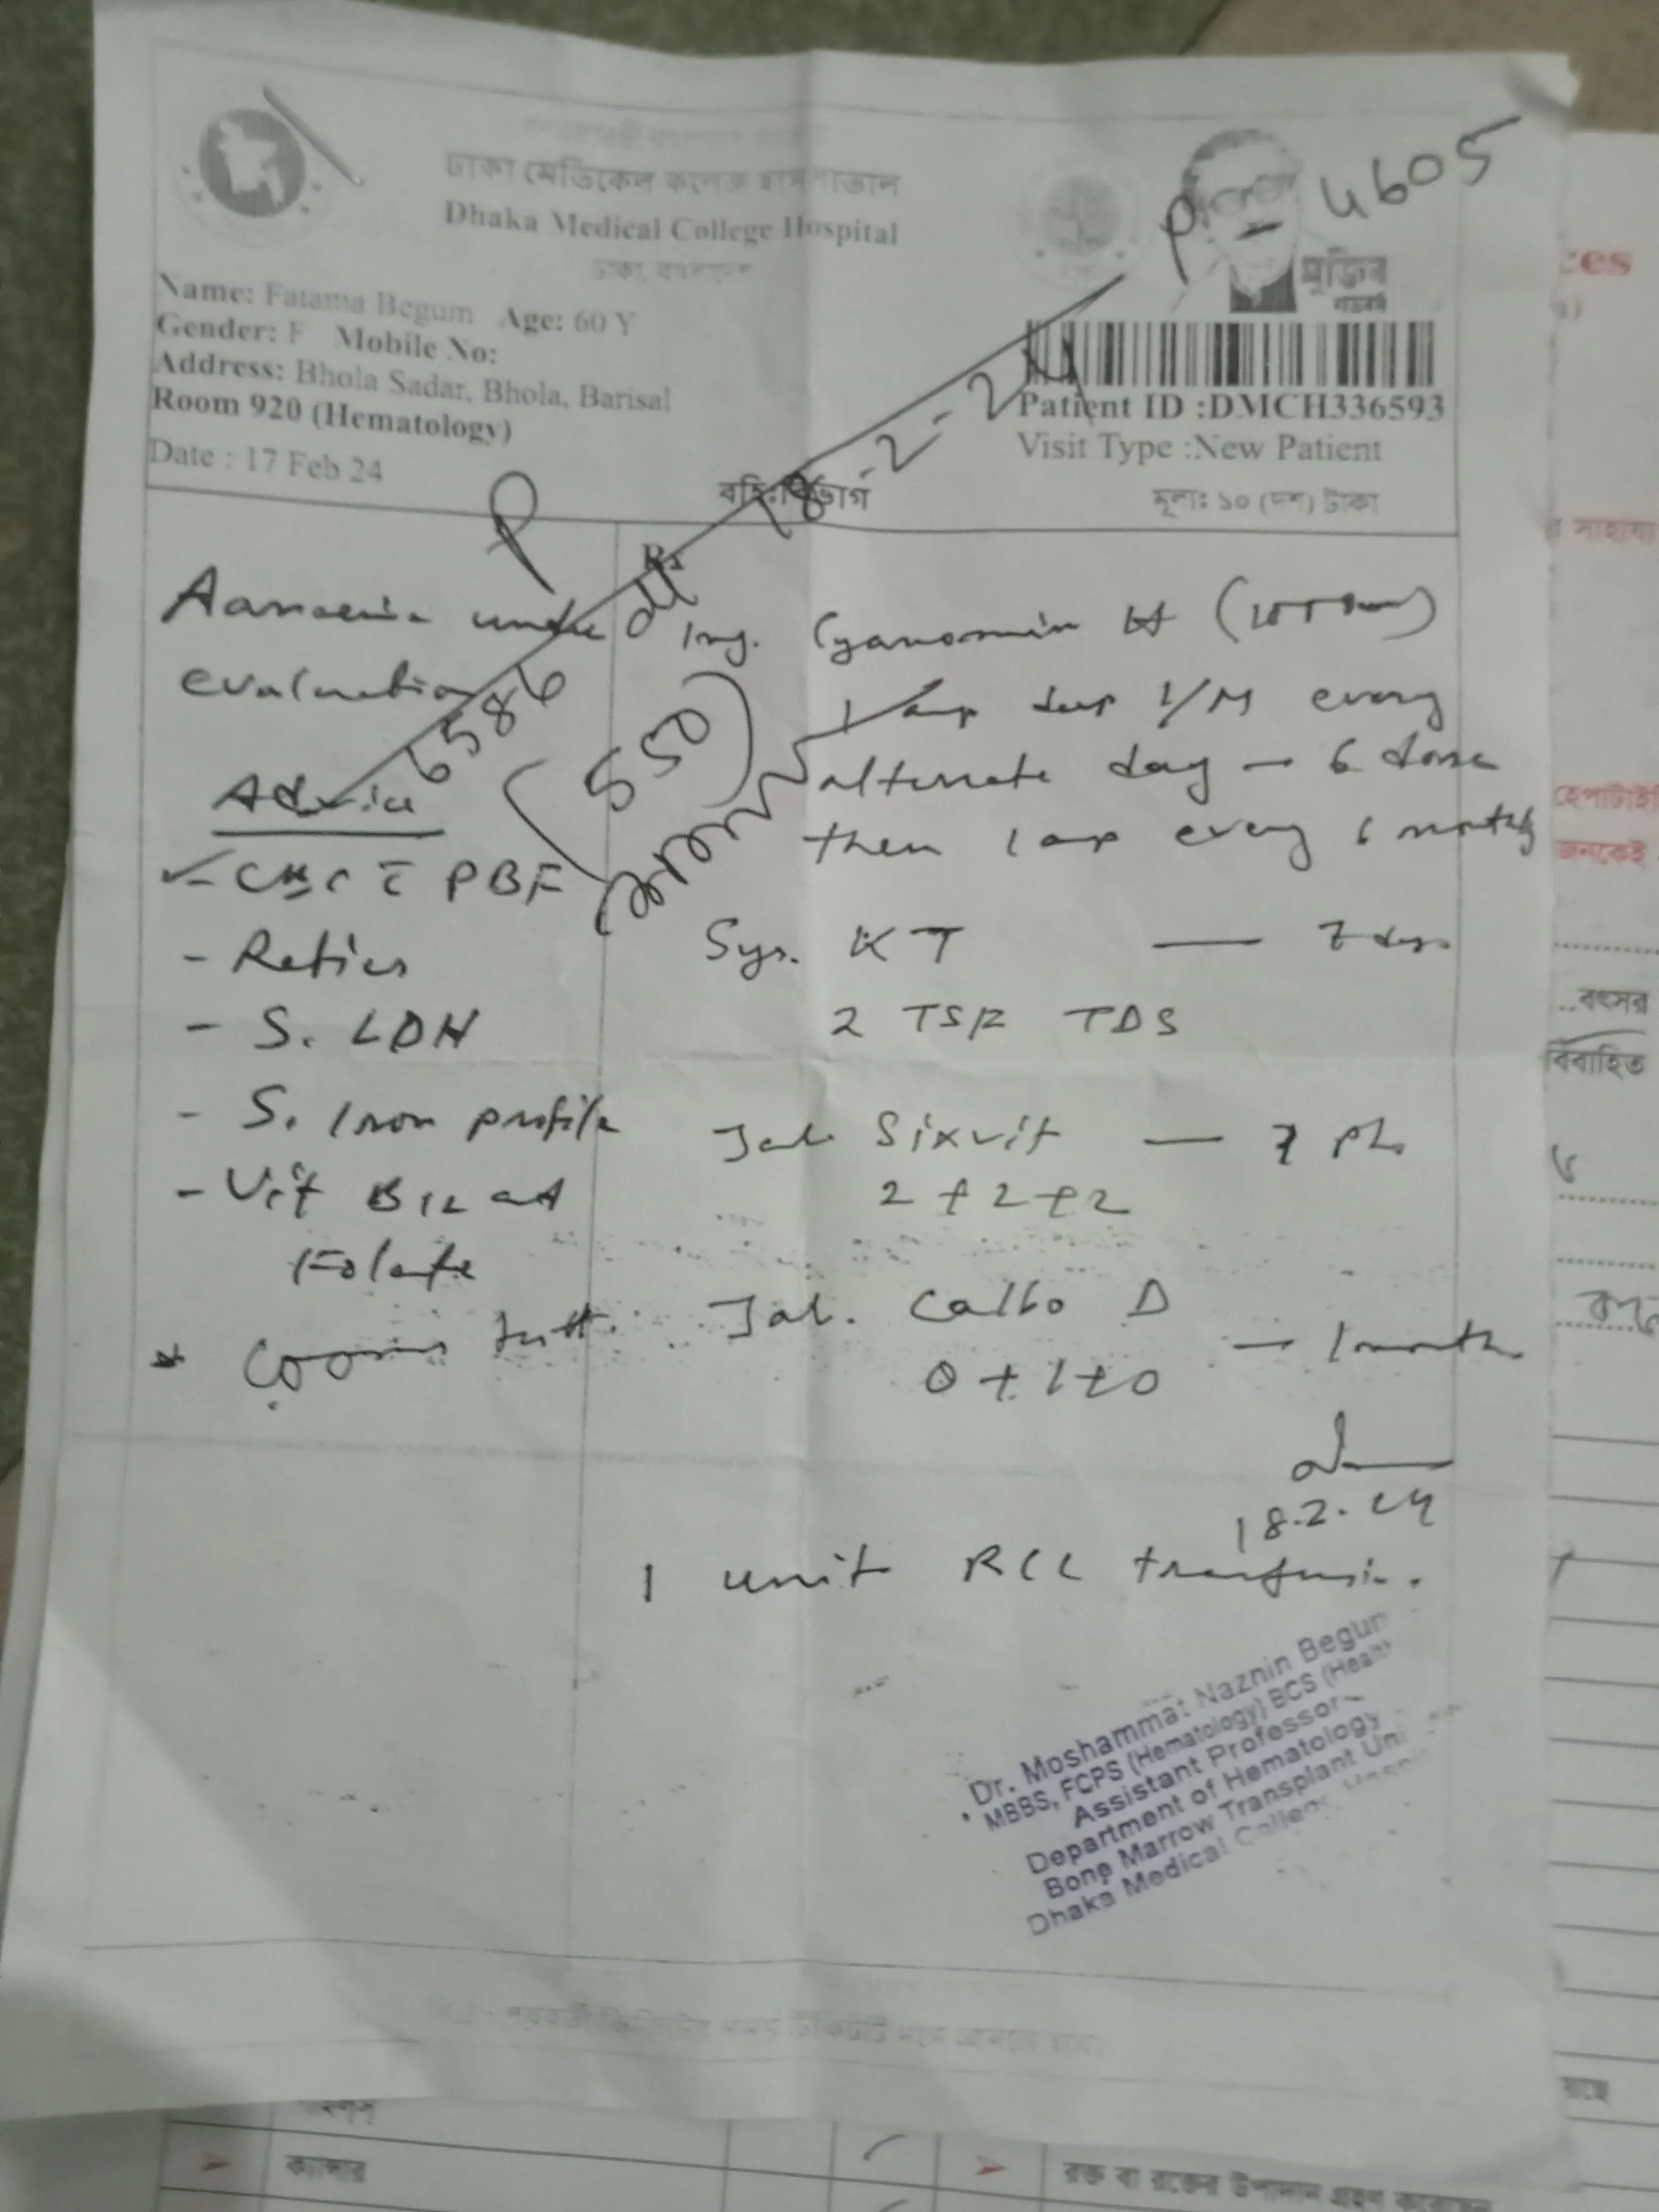 ঢাকা মেডিকেল কলেজ হাসপাতাল
Dhaka Medical College Hospital
ঢাকা, বাংলাদেশ
4605
মুজিব
Name: Fatama Begum Age: 60 Y
Gender: F Mobile No:
Address: Bhola Sadar, Bhola, Barisal
Room 920 (Hematology)
Date : 17 Feb 24
Patient ID :DMCH336593
Visit Type :New Patient
বহিঃবিভাগ
মূল্যঃ ১০ (দশ) টাকা
18-2-24
6586
(550)
Rx
Anaemia under
evaluation
Advice
- CBC c PBF
- Retics
- S. LDH
- S. Iron profile
- Vit B12 and
Folate
* Coombs test.
Inj. Cyanomin
1 amp deep I/M every
alternate day - 6 dose
then 1 amp every 6 months
Syr. KT — 7 days
2 TSF TDS
Tab. Sixvit — 7
2+2+2
Tab. Calbo D
0+1+0 — 1 month
18.2.24
1 unit RCC transfusion.
Dr. Moshammat Naznin Begum
MBBS, FCPS (Hematology) BCS (Health
Assistant Professor
Department of Hematology
Bone Marrow Transplant Uni
Dhaka Medical College Hosp
ক্যান্সার
রক্ত বা রক্তের উপাদান গ্রহণ করেছেন
ces
র সাহায্য
জনকেই
..বৎসর
বিবাহিত